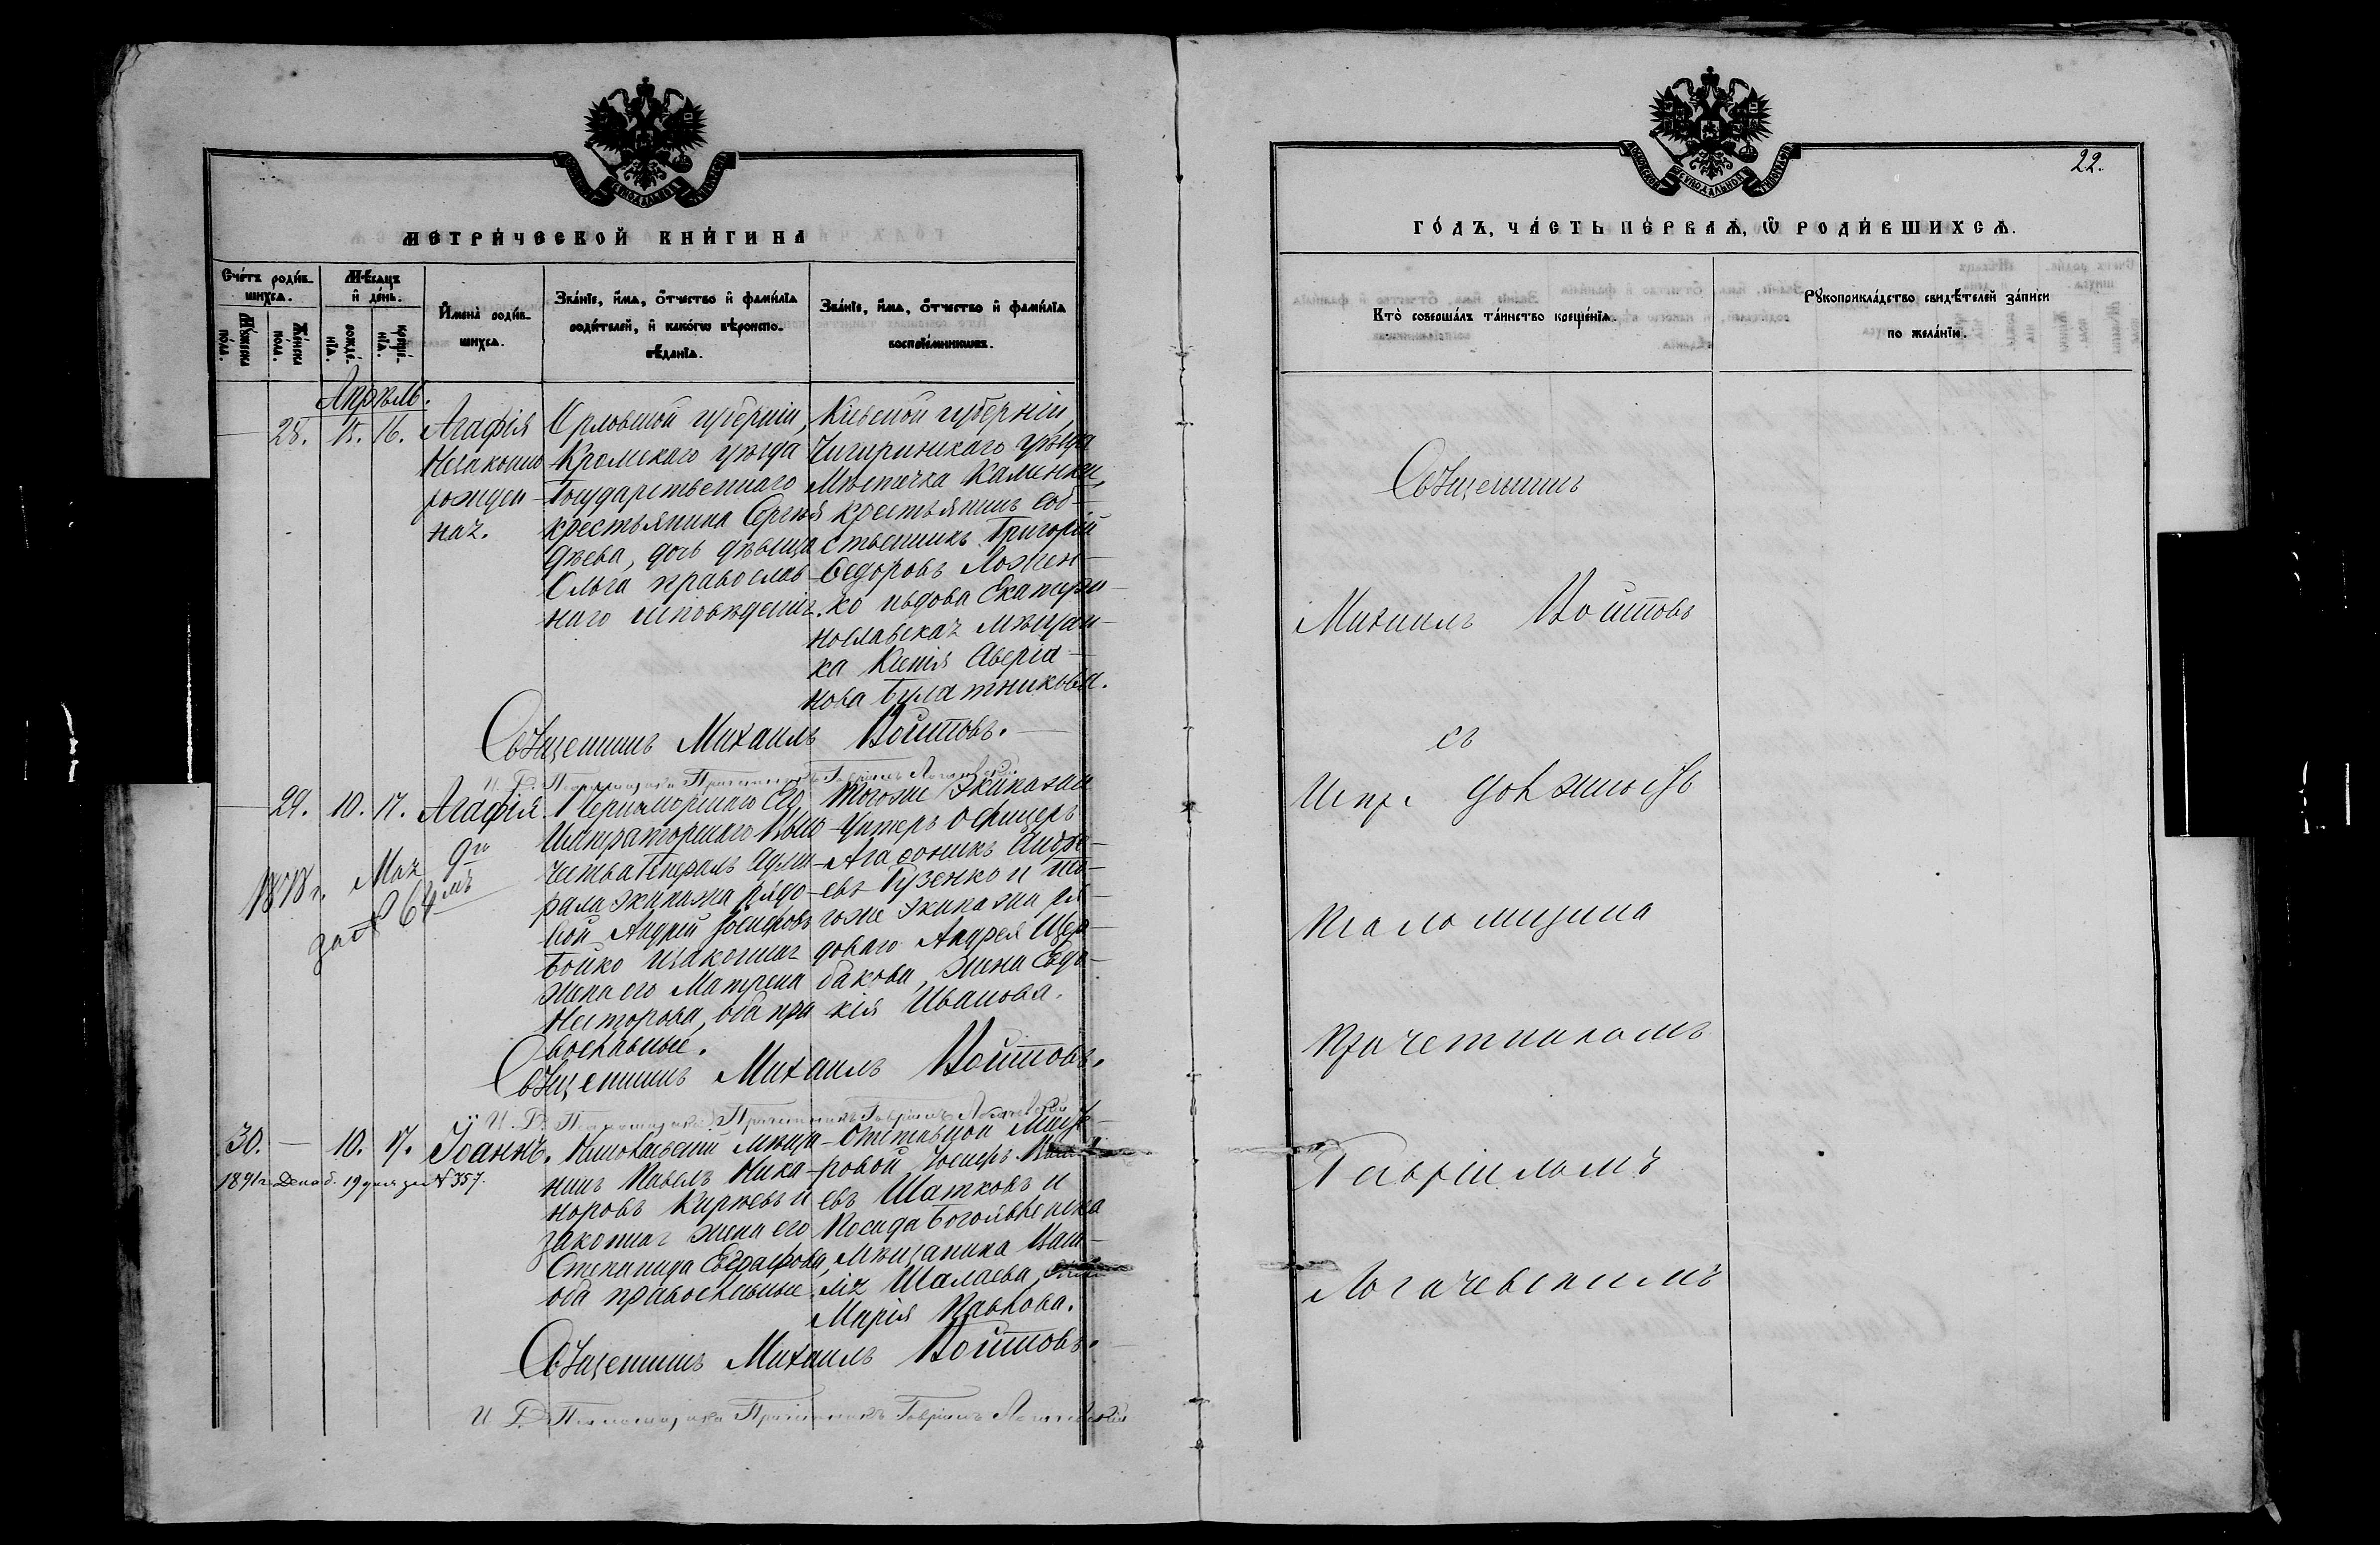 МЕТРИ́ЧЕСКОЙ КНИ́ГИ НА
Сче́тъ роди́в-
шихсѧ.
Мѣ́сацъ
и҆ де́нь.
Мꙋ́жеска
по́ла.
Же́нска
по́ла.
рожде́-
нїѧ.
креще́-
нїѧ.
И҆мена̀ роди́в-
шихсѧ.
Зва́нїе, и҆́мѧ, ѻ҆́тчество и҆ фами́лїѧ
роди́телей, и҆ како́гѡ вѣроиспо-
вѣ́данїѧ.
Зва́нїе, и҆́мѧ, ѻ҆́тчество и҆ фами́лїѧ
воспрїе́мникѡвъ.
Апрѣль.
28. 15. 16.
Агафія
Незаконно
рожден-
ная.
Орловской губерніи,
Кромскаго уѣзда
Государственнаго
крестьянина Сергѣя
дѣева, дочь дѣвица
Ольга православ-
наго исповѣденія.
Кіевской губерніи,
Чигиринскаго уѣзда
Мѣстечка Каменки,
крестьянинъ соб-
ственникъ Григорій
Федоровъ Ложен-
ко вдова Екатери-
нославская мѣщан-
ка Ксенія Аверіа-
нова Булатникова.
Священникъ Михаилъ Войтовъ.
И. Д. Псаломщика Причетникъ Гавріилъ Логачевскій
29. 10. 17. Агафія.
1878 г. Мая 9го
за № 64мъ
Черноморскаго Его
Императорскаго Высо-
чества Генералъ Адми-
рала экипажа рядо-
вой Андрей Іосифовъ
Бойко и законная
жена его Матрена
Несторова, оба пра-
вославные.
Тогоже Экипажа
Унтеръ офицеръ
Агафоникъ Андре-
евъ Гузенко и то-
гоже экипажа ря-
доваго Андрея Щер-
бакова, жена Евдо-
кія Иванова.
Священникъ Михаилъ Войтовъ.
И. Д. Псаломщика Причетникъ Гавріилъ Логачевскій
30. — 10. 17. Іоаннъ.
1891 г. Декаб. 19 дня за № 357.
мѣща-
нинъ Павелъ Ника-
норовъ Кирѣевъ и
законная жена его
Степанида Евграфова,
оба православные
Отставной
Іосифъ
евъ Шатковъ и
Посада Богоявленска
мѣщанина
Шалаева,
Марія Павлова.
Священникъ Михаилъ Войтовъ.
И. Д. Псаломщика Причетникъ Гавріилъ Логачевскій
22.
ГО́ДЪ, ЧА́СТЬ ПЕ́РВАѦ, Ѡ҆ РОДИ́ВШИХСѦ.
Кто̀ соверша́лъ та́инство креще́нїѧ.
Рꙋкоприкла́дство свидѣ́телей за́писи
по жела́нїю.
Священникъ
Михаилъ Войтовъ
съ
Испр. должность
Псаломщика
Причетникомъ
Гавріиломъ
Логачевскимъ